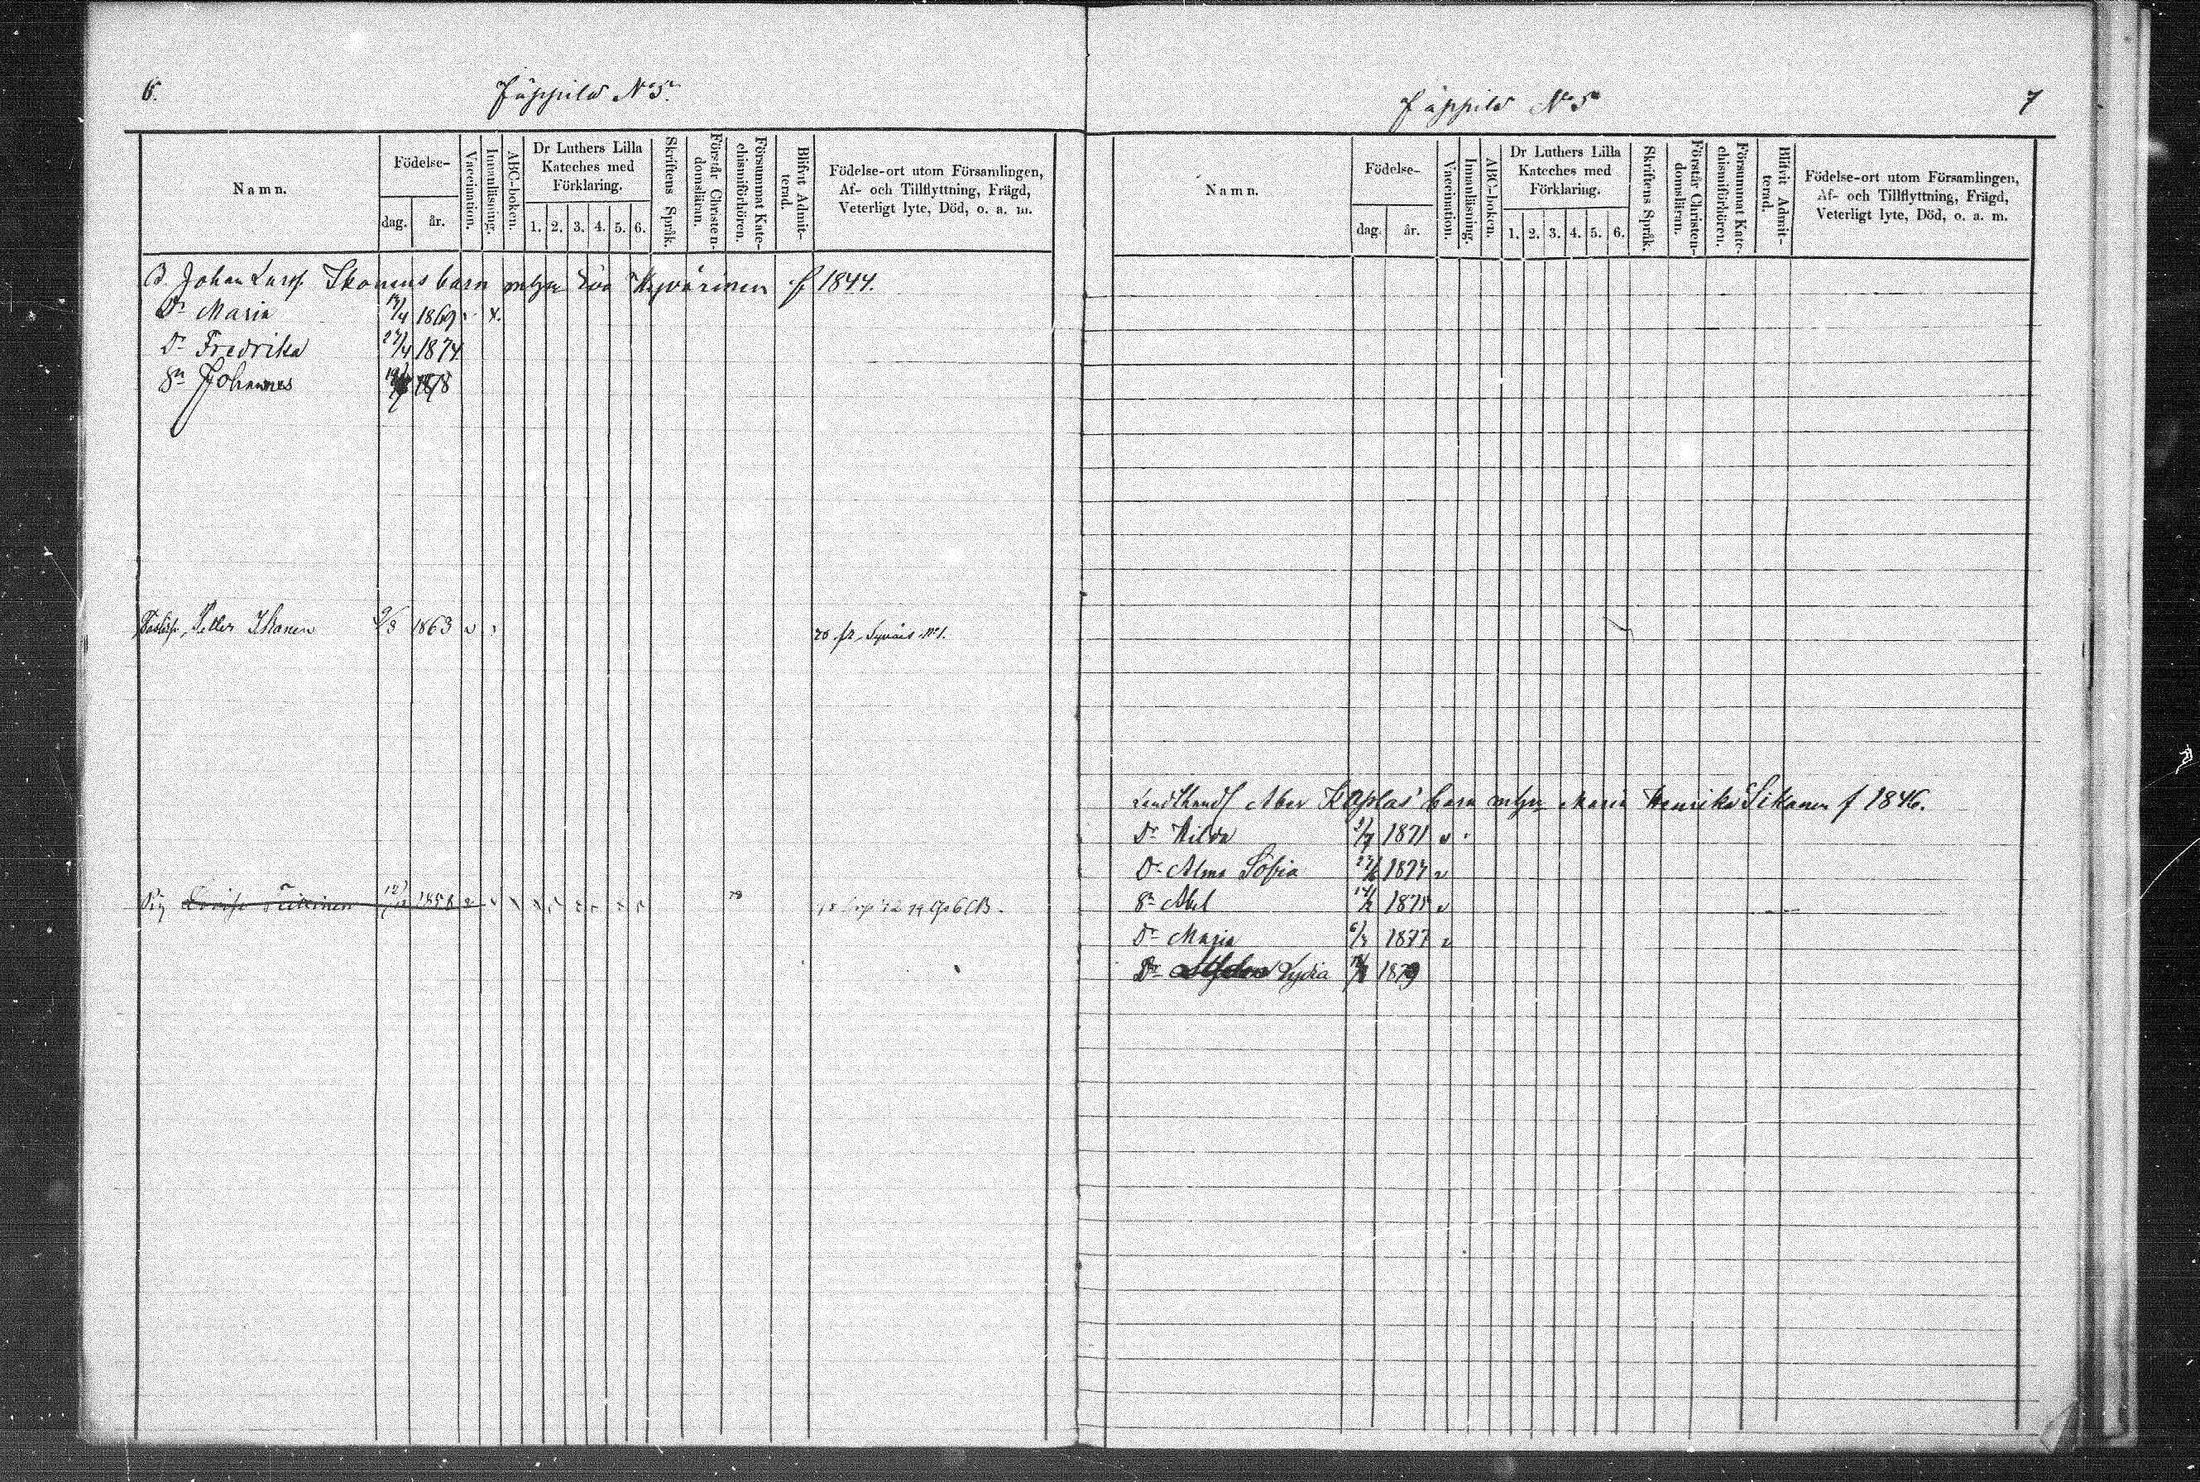 6.
Jäppilä No 5.
Namn.
Födelse-
dag.
år.
Vaccination.
Innanläsning.
ABC-boken.
Dr Luthers Lilla
Kateches med
Förklaring.
1. 2. 3. 4. 5. 6.
Skriftens Språk.
Förstår Christen-
domsläran.
Försummat Kate-
chismiförhören.
Blifvit Admit-
terad.
Födelse-ort utom Församlingen,
Af- och Tillflyttning, Frägd,
Veterligt lyte, Död, o. a. m.
B. Johan Larss. Ikonens barn m. Eva Hyvärinen f 1844.
Dr Maria 1869
Dr Fredrika 27/4 1874
Sn Johannes 1878
Petter Ikonen 9/3 1863 fr Syväis No 1.
Pig 12/12 1858 79
Jäppilä No 5
7
Namn.
Födelse-
dag.
år.
Vaccination.
Innanläsning.
ABC-boken.
Dr Luthers Lilla
Kateches med
Förklaring.
1. 2. 3. 4. 5. 6.
Skriftens Språk.
Förstår Christen-
domsläran.
Försummat Kate-
chismiförhören.
Blifvit Admit-
terad.
Födelse-ort utom Församlingen,
Af- och Tillflyttning, Frägd,
Veterligt lyte, Död, o. a. m.
Abel barn Maria Henrika f 1846.
Dr Hilda 1871
Dr Alma Sofia 1874
Sn Abel 1875
Dr Maria 1877
Dr Lydia 1879